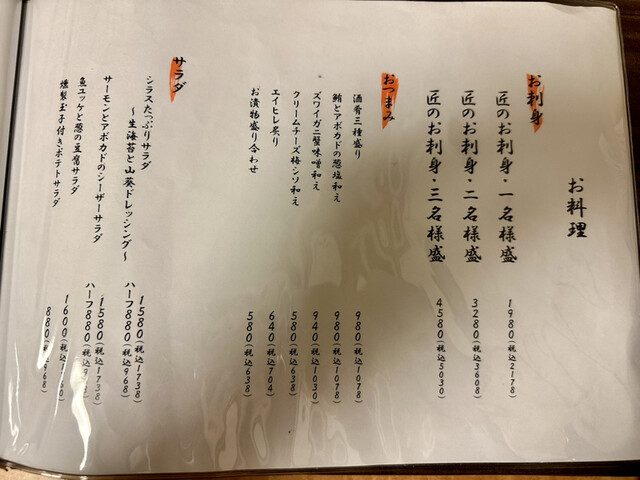 お料理
お刺身
匠のお刺身・一名様盛 1980(税込2178)
匠のお刺身・二名様盛 3280(税込3608)
匠のお刺身・三名様盛 4580(税込5030)
おつまみ
酒肴三種盛り 980(税込1078)
鮪とアボカドの葱塩和え 980(税込1078)
ズワイガニ蟹味噌和え 940(税込1030)
クリームチーズ梅シソ和え 580(税込638)
エイヒレ炙り 640(税込704)
お漬物盛り合わせ 580(税込638)
サラダ
シラスたっぷりサラダ 1580(税込1738)
～生海苔と山葵ドレッシング～ ハーフ880(税込968)
サーモンとアボカドのシーザーサラダ 1580(税込1738)
ハーフ880(税込968)
魚ユッケと葱の豆腐サラダ 1600(税込1760)
燻製玉子付きポテトサラダ 880(税込968)